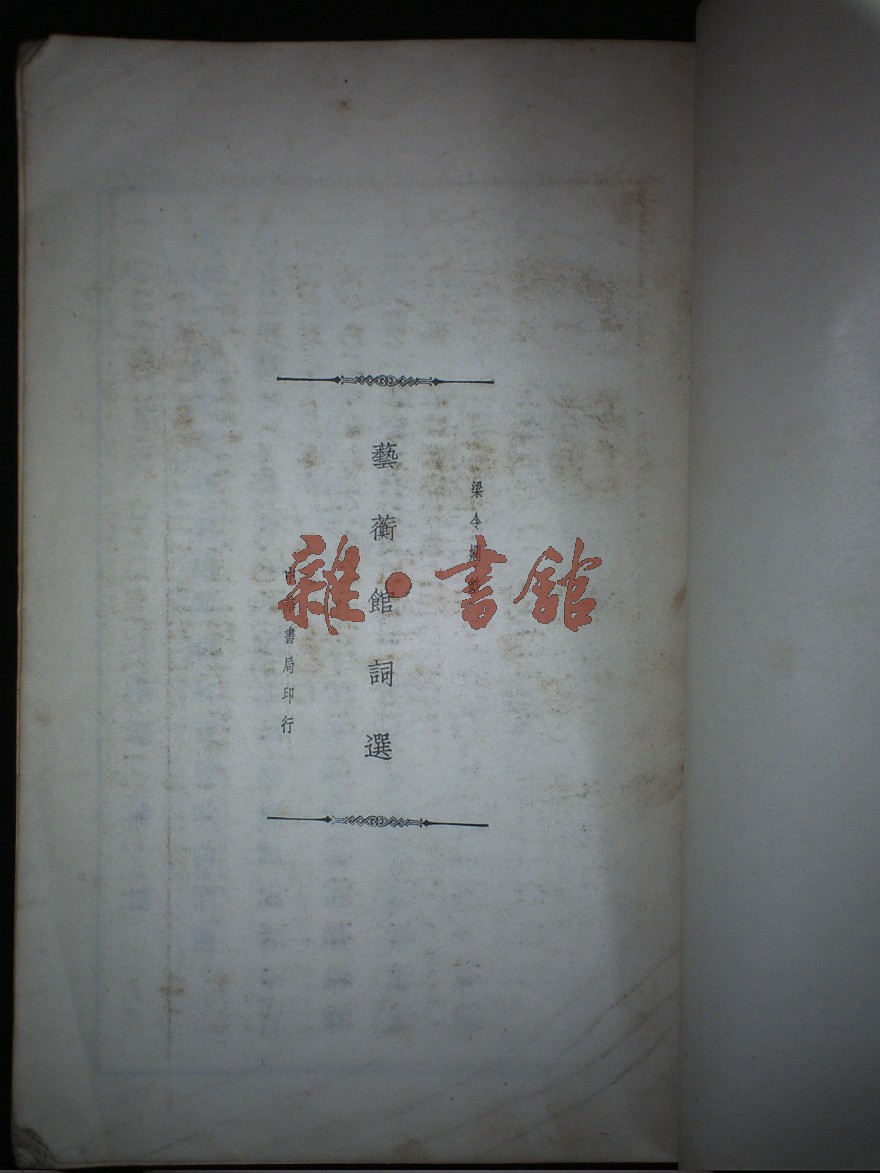 梁令
藝蘅館詞選
中 書局印行
雜·書館